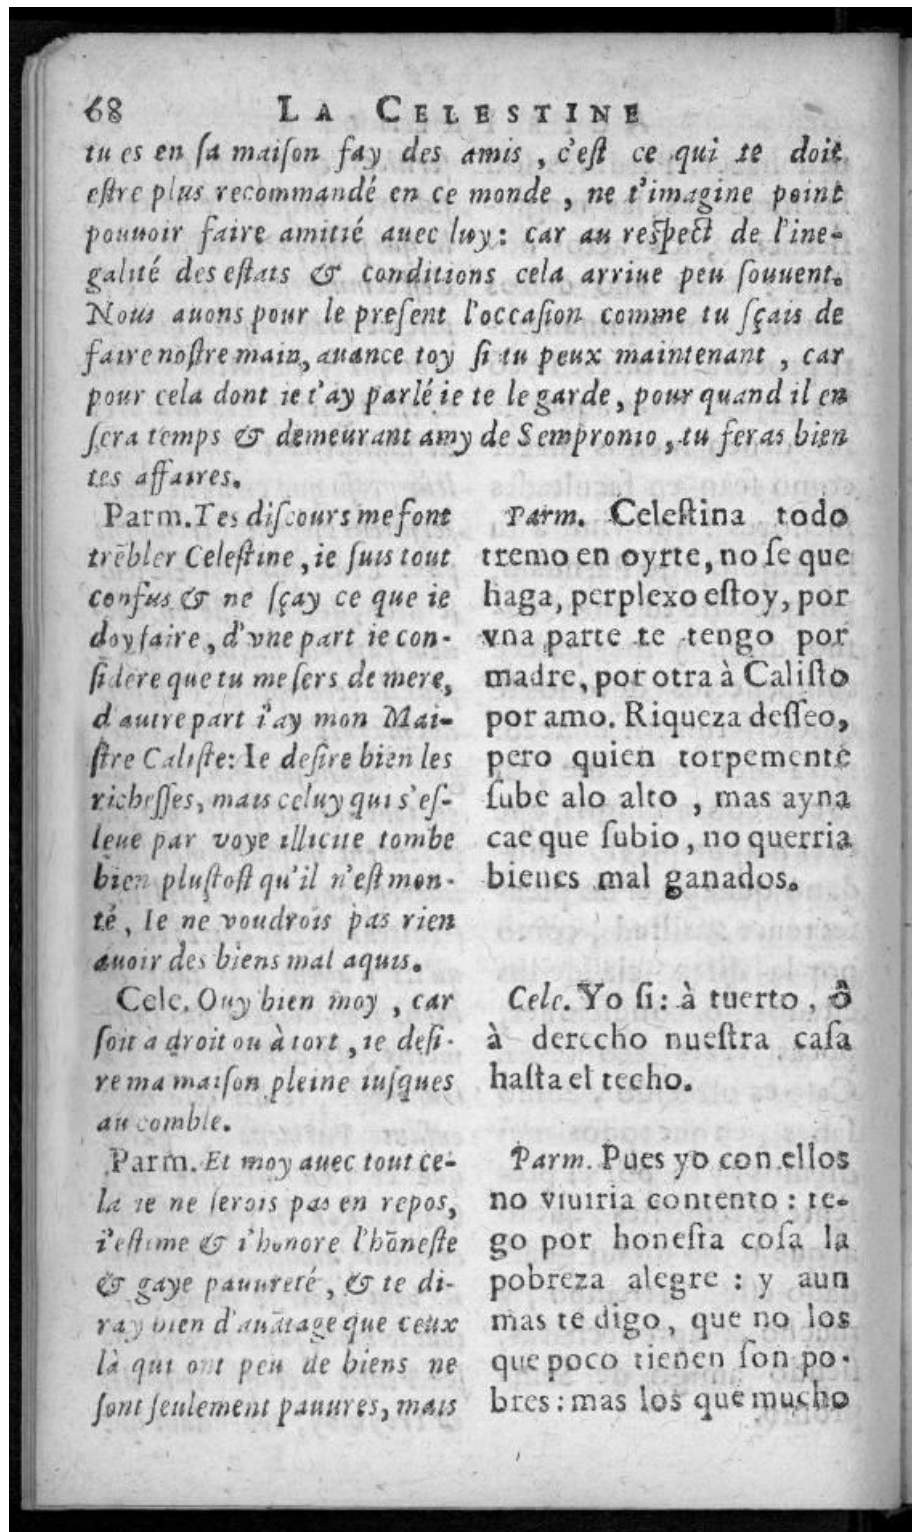 68 LA CELESTINE
tu es en ſa maiſon fay des amis, c'eſt ce qui te doit
eſtre plus recommandé en ce monde, ne t'imagine point
pouuoir faire amitié auec luy: car au reſpect de l'ine-
galité des eſtats & conditions cela arriue peu ſouuent.
Nous auons pour le preſent l'occaſion comme tu ſçais de
faire noſtre main, auance toy ſi tu peux maintenant, car
pour cela dont ie t'ay parlé ie te le garde, pour quand il en
ſera temps & demeurant amy de Sempronio, tu feras bien
tes affaires.
Parm. Tes diſcours me font
trẽbler Celeſtine, ie ſuis tout
confus & ne ſçay ce que ie
doy faire, d'vne part ie con-
ſidere que tu me ſers de mere,
d'autre part i'ay mon Mai-
ſtre Caliſte: Ie deſire bien les
richeſſes, mais celuy qui s'eſ-
leue par voye illicite tombe
bien pluſtoſt qu'il n'eſt mon-
té, Ie ne voudrois pas rien
auoir des biens mal aquis.
Cele. Ouy bien moy, car
ſoit a droit ou à tort, ie deſi-
re ma maiſon pleine iuſques
au comble.
Parm. Et moy auec tout ce-
la ie ne ſerois pas en repos,
i'eſtime & i'honore l'hõneſte
& gaye pauureté, & te di-
ray bien d'auãtage que ceux
là qui ont peu de biens ne
ſont ſeulement pauures, mais
Parm. Celeſtina todo
tremo en oyrte, no ſe que
haga, perplexo eſtoy, por
vna parte te tengo por
madre, por otra à Caliſto
por amo. Riqueza deſſeo,
pero quien torpemente
ſube alo alto, mas ayna
cae que ſubio, no querria
bienes mal ganados.
Cele. Yo ſi: à tuerto, ô
à derecho nueſtra caſa
haſta el techo.
Parm. Pues yo con ellos
no viuiria contento: te-
go por honeſta coſa la
pobreza alegre: y aun
mas te digo, que no los
que poco tienen ſon po-
bres: mas los que mucho